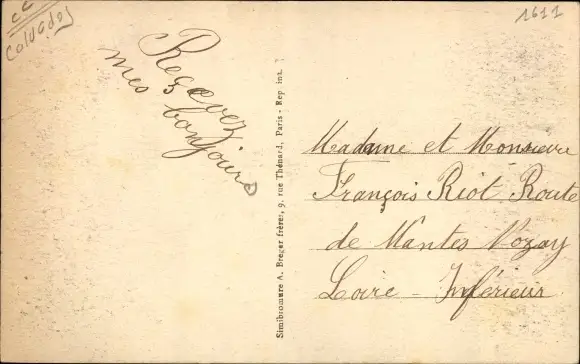 CC
Calvados
1611
Recevez
mes bonjours
Simibromure A. Breger frères, 9, rue Thénard, Paris - Rep. int.
Madame et Monsieur
François Riot Route
de Nantes Vozay
Loire - Inférieur